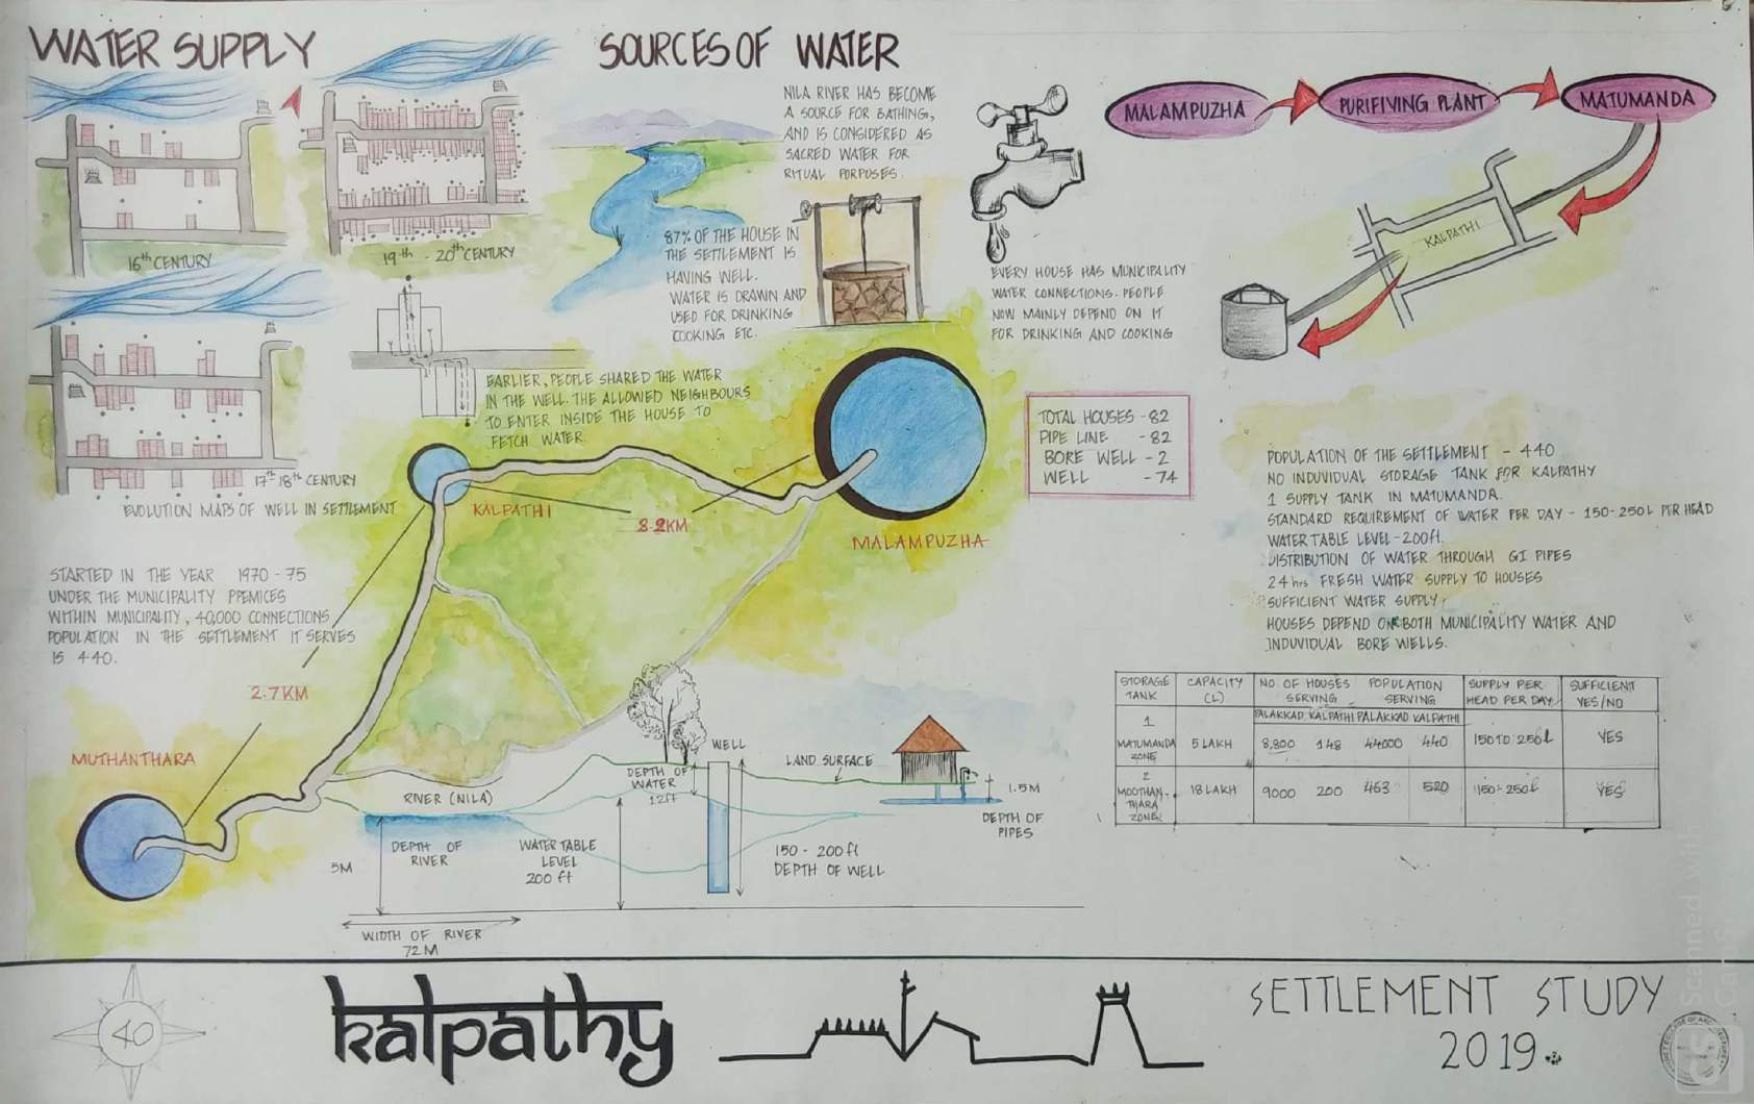 WATER SUPPLY
SOURCES OF WATER
16th CENTURY
19th - 20th CENTURY
17th 18th CENTURY
EVOLUTION MAPS OF WELL IN SETTLEMENT
NILA RIVER HAS BECOME
A SOURCE FOR BATHING,
AND IS CONSIDERED AS
SACRED WATER FOR
RITUAL PORPOSES.
87% OF THE HOUSE IN
THE SETTLEMENT IS
HAVING WELL.
WATER IS DRAWN AND
USED FOR DRINKING
COOKING ETC.
EVERY HOUSE HAS MUNICIPALITY
WATER CONNECTIONS. PEOPLE
NOW MAINLY DEPEND ON IT
FOR DRINKING AND COOKING
MALAMPUZHA
PURIFIVING PLANT
MATUMANDA
KALPATHI
EARLIER, PEOPLE SHARED THE WATER
IN THE WELL. THE ALLOWED NEIGHBOURS
TO ENTER INSIDE THE HOUSE TO
FETCH WATER
TOTAL HOUSES - 82
PIPE LINE - 82
BORE WELL - 2
WELL - 74
KALPATHI
8.2KM
MALAMPUZHA
STARTED IN THE YEAR 1970 - 75
UNDER THE MUNICIPALITY PREMICES
WITHIN MUNICIPALITY, 40,000 CONNECTIONS
POPULATION IN THE SETTLEMENT IT SERVES
IS 440.
2.7KM
MUTHANTHARA
POPULATION OF THE SETTLEMENT - 440
NO INDUVIDUAL STORAGE TANK FOR KALPATHY
1 SUPPLY TANK IN MATUMANDA.
STANDARD REQUIREMENT OF WATER PER DAY - 150-250L PER HEAD
WATER TABLE LEVEL - 200ft.
DISTRIBUTION OF WATER THROUGH GI PIPES
24hrs FRESH WATER SUPPLY TO HOUSES
SUFFICIENT WATER SUPPLY
HOUSES DEPEND ON BOTH MUNICIPALITY WATER AND
INDUVIDUAL BORE WELLS.
STORAGE TANK CAPACITY (L) NO OF HOUSES SERVING POPULATION SERVING SUPPLY PER HEAD PER DAY SUFFICIENT YES/NO
PALAKKAD KALPATHI PALAKKAD KALPATHI
1 MATUMANDA ZONE 5 LAKH 8,800 148 44000 440 150 TO 250L YES
2 MOOTHANTHARA ZONE 18 LAKH 9000 200 463 520 150-250L YES
RIVER (NILA)
DEPTH OF RIVER
5M
WATER TABLE
LEVEL
200 ft
DEPTH OF
WATER
12ft
WELL
LAND SURFACE
1.5M
DEPTH OF
PIPES
150 - 200 ft
DEPTH OF WELL
WIDTH OF RIVER
72M
40
kalpathy
SETTLEMENT STUDY
2019
Scanned with